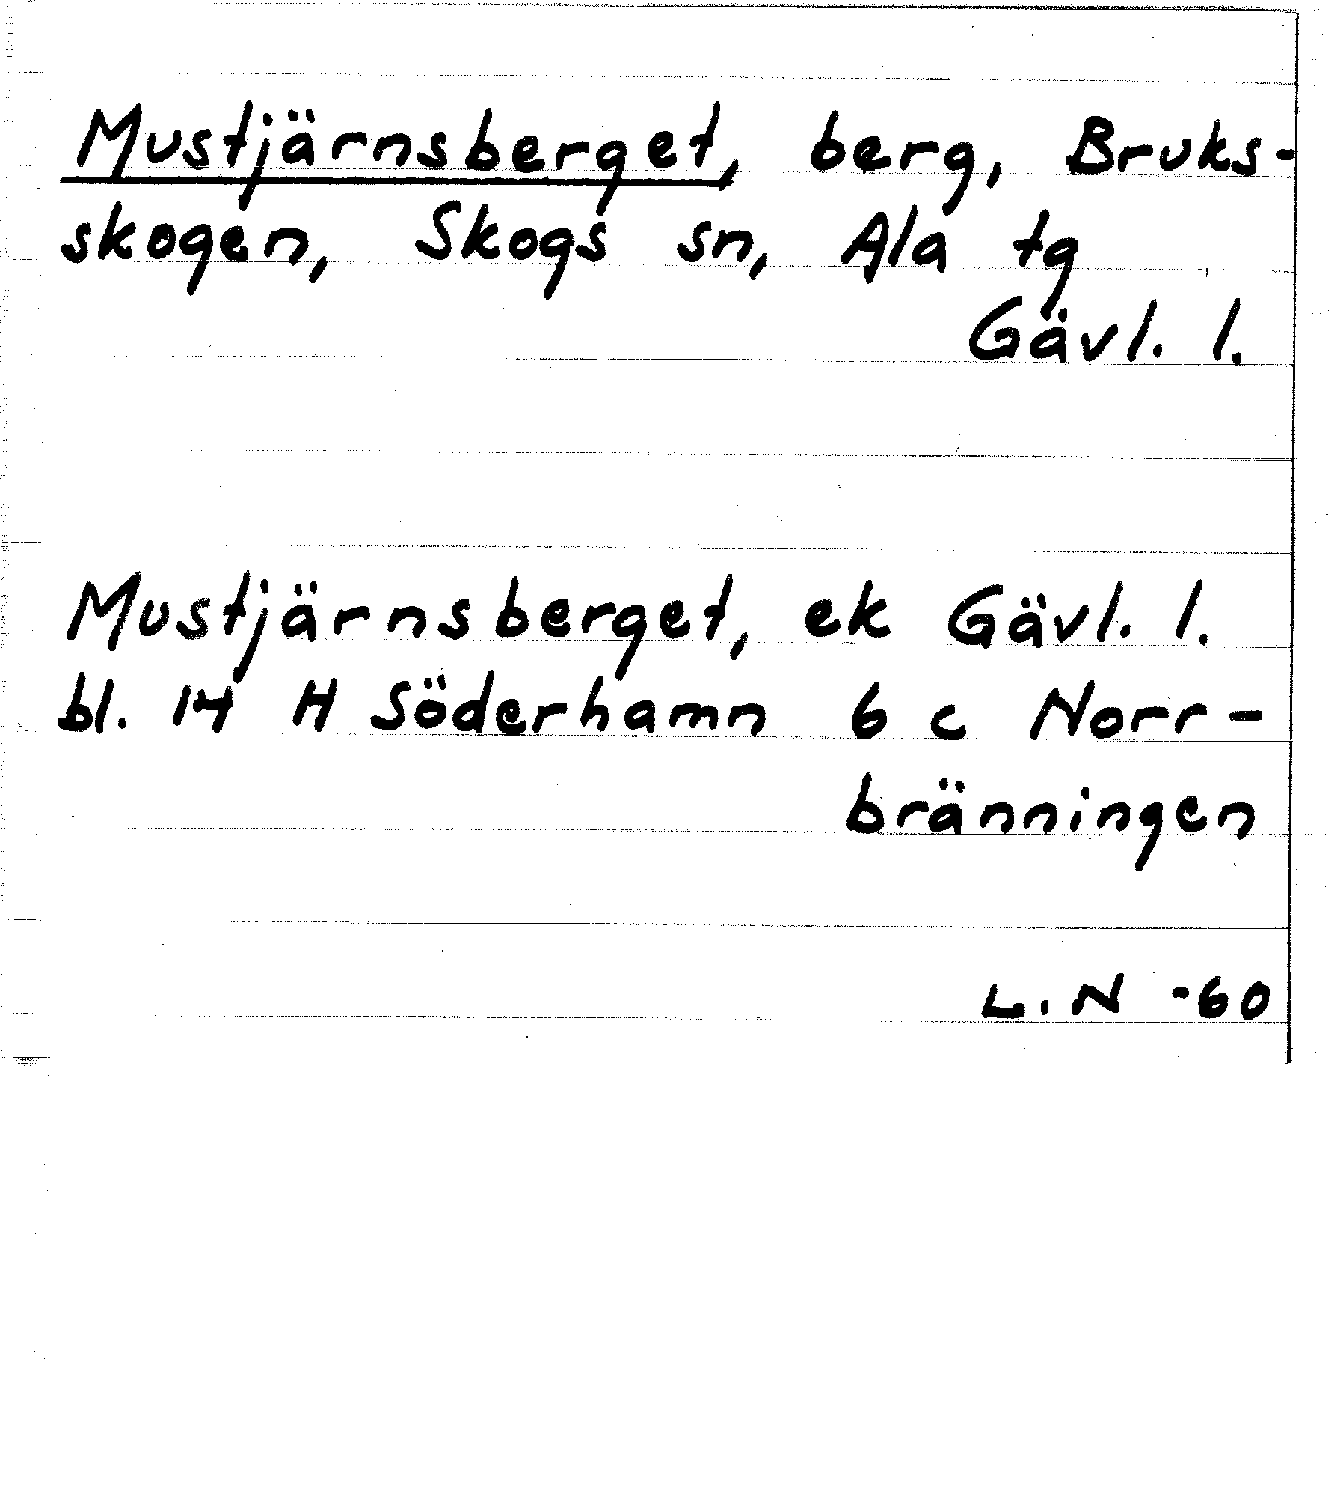 Mustjärnsberget, berg, Bruks-
skogen, Skogs sn, Ala tg
Gävl. l.
Mustjärnsberget, ek Gävl. l.
bl. 14 H Söderhamn 6 c Norr-
bränningen
L.N -60